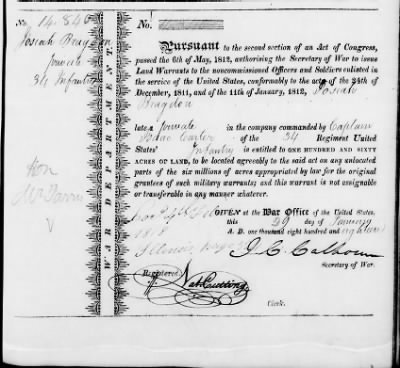 No. 14.846
Josiah Bragdon
private
34 Infantry
Hon
WAR DEPARTMENT.
No.
Pursuant to the second section of an Act of Congress,
passed the 6th of May, 1812, authorising the Secretary of War to issue
Land Warrants to the noncommissioned Officers and Soldiers enlisted
in the service of the United States, conformably to the acts of the 24th of
December, 1811, and of the 11th of January, 1812, Josiah
Bragdon
late a private in the company commanded by Captain
Isaac Carter of the 34 Regiment United
States' Infantry is entitled to ONE HUNDRED AND SIXTY
ACRES OF LAND, to be located agreeably to the said act on any unlocated
parts of the six millions of acres appropriated by law for the original
grantees of such military warrants; and this warrant is not assignable
or transferable in any manner whatever.
GIVEN at the War Office of the United States,
this 29 day of January
A. D. one thousand eight hundred and eighteen
1818
Illinois
J. C. Calhoun
Secretary of War.
Registered,
Nat Cutting
Clerk.